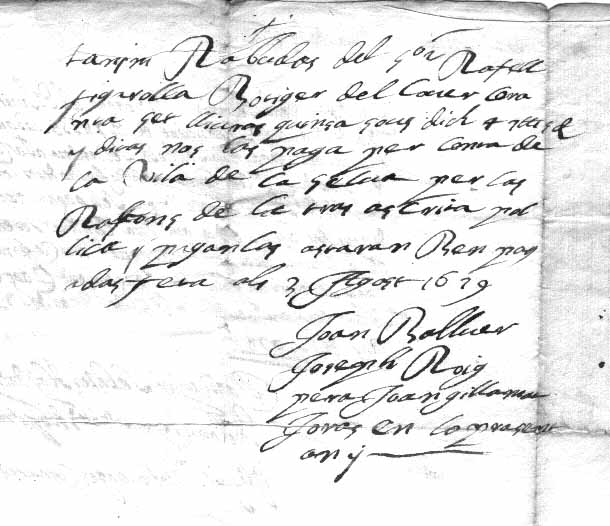 tanim Rabudas del Sor Rafell
figarolla Botiger del Carer
sis lliuras quinsa sous dich
y dicas nos las paga per conta de
la Vila de la Selua per las
Rahons de la tras ascrita pol
lica y pagantlas astaran Ben pag
adas feta als 3 Agost 1629
Joan Bolluer
Joseph Roig
pera Joan gillama
Joras en lo presen
any